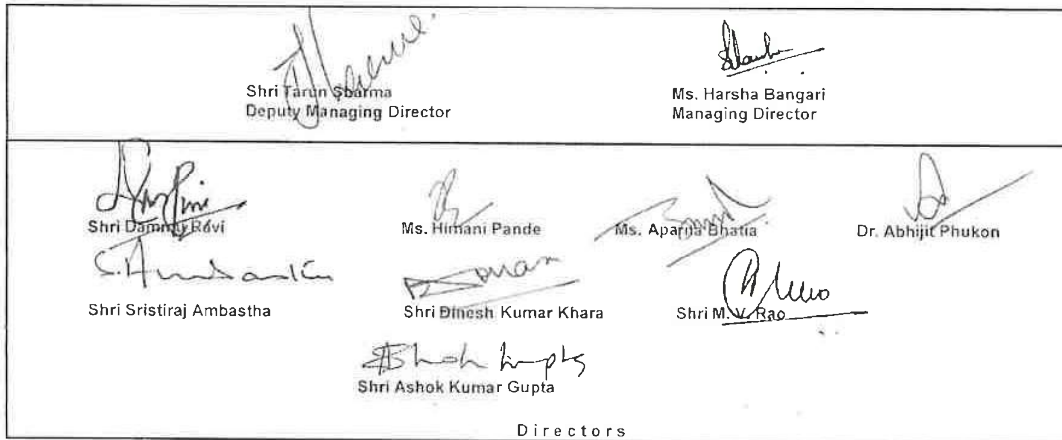 Shri Tarun Sharma
Deputy Managing Director
Ms. Harsha Bangari
Managing Director
Shri Dammu Ravi
Ms. Himani Pande
Ms. Aparna Bhatia
Dr. Abhijit Phukon
Shri Sristiraj Ambastha
Shri Dinesh Kumar Khara
Shri M. V. Rao
Ashok Gupta
Shri Ashok Kumar Gupta
Directors